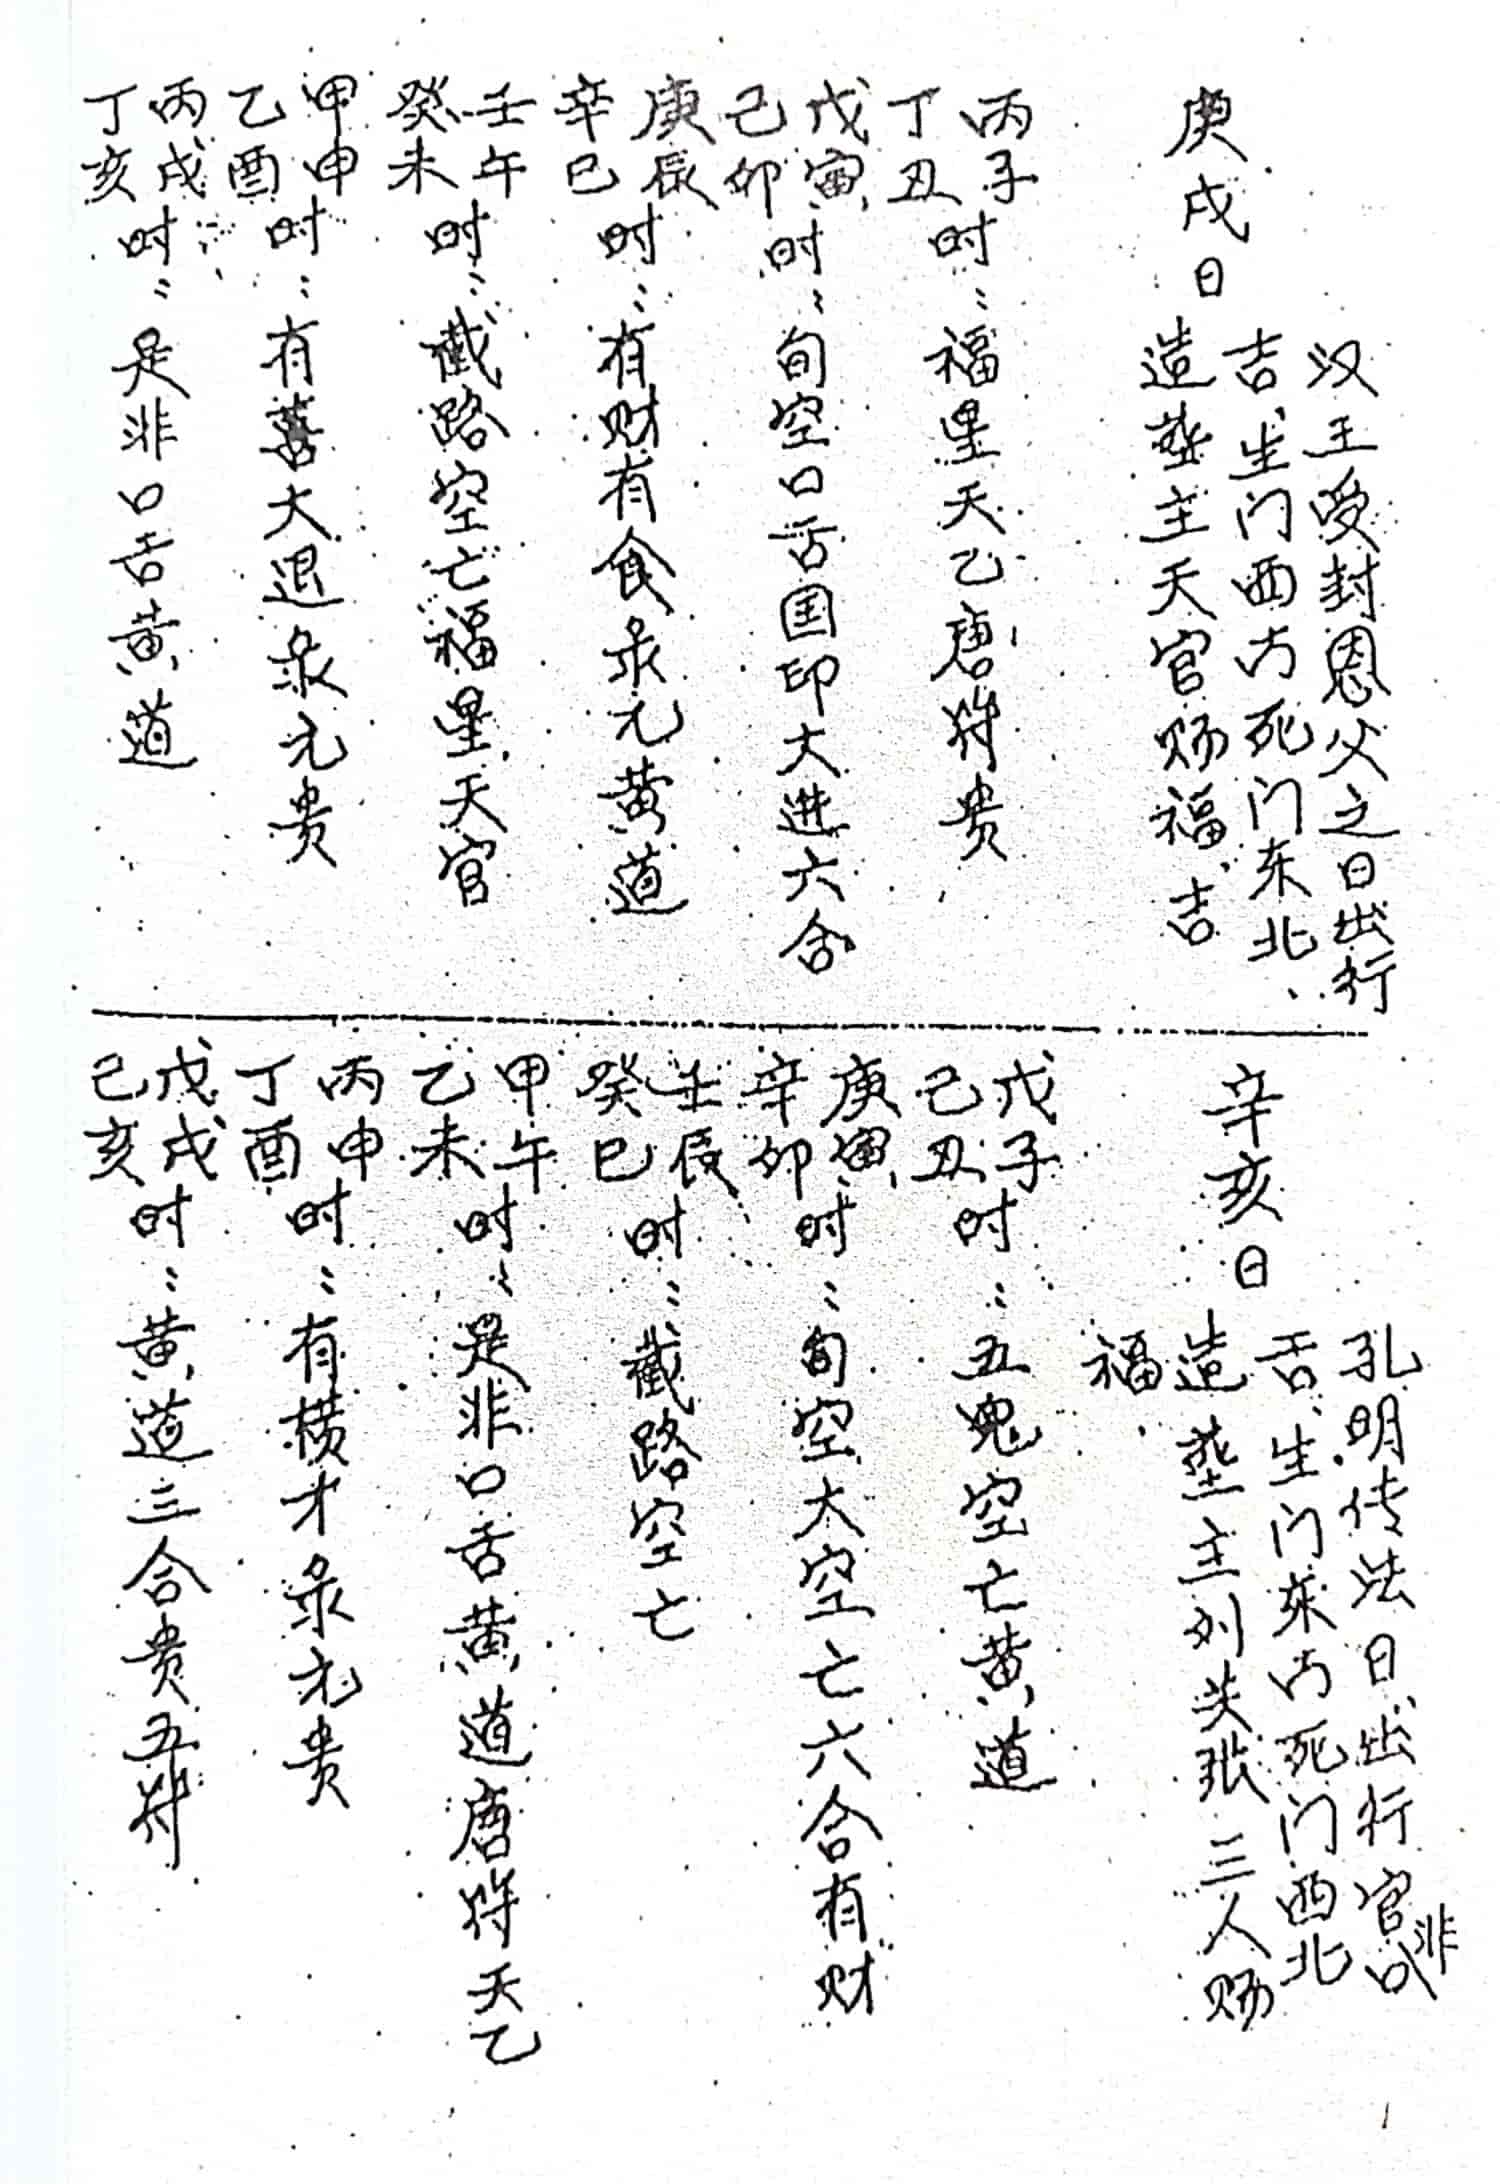 庚戌日
汉王受封恩父之日出行
吉、生门西方死门东北、
造葬主天官赐福、吉
丙子
丁丑
时：福星天乙唐符贵
戊寅
己卯
时：旬空口舌国印大进六合
庚辰
辛巳
时：有财有食彔元黄道
壬午
癸未
时：截路空亡福星天官
甲申
乙酉
时：有喜大退彔元贵
丙戌
丁亥
时：是非口舌黄道
辛亥日
孔明传法日出行官非口
舌、生门东方死门西北
造葬主刘关张三人赐
福
戊子
己丑
时：五鬼空亡黄道
庚寅
辛卯
时：旬空大空亡六合有财
壬辰
癸巳
时：截路空亡
甲午
乙未
时：是非口舌黄道唐符天乙
丙申
丁酉
时：有横才彔元贵
戊戌
己亥
时：黄道三合贵五符